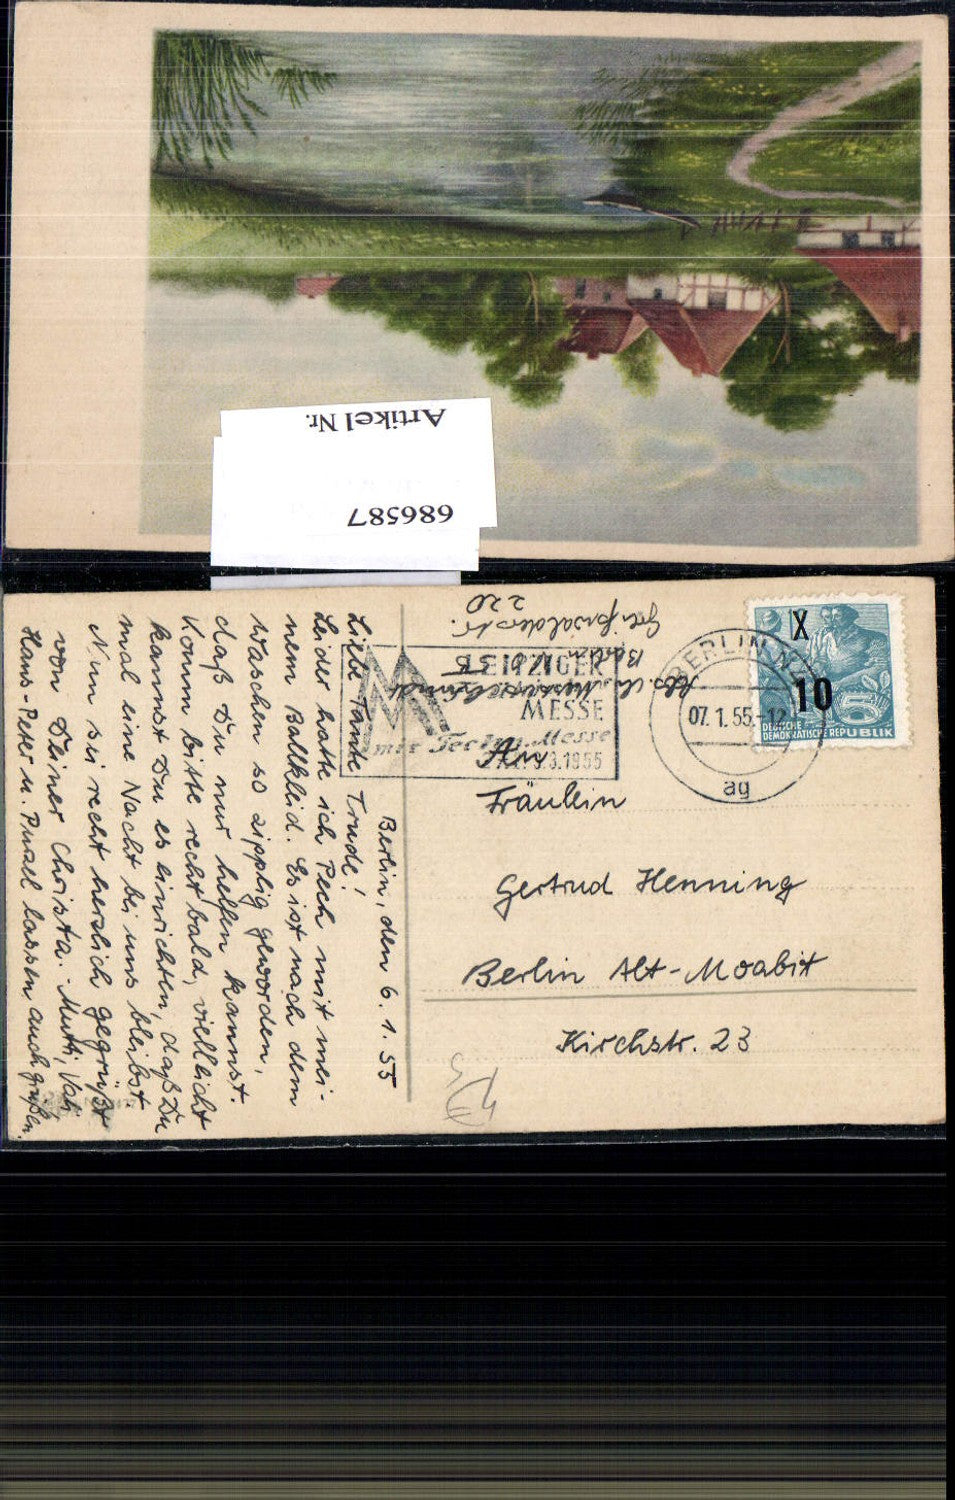 Artikel Nr.
686587
Berlin, den 6.1.55
Liebe Tante Trude!
Leider hatte ich Pech mit mei-
nem Ballkleid. Es ist nach dem
Waschen so zipplig geworden,
daß Du nur helfen kannst.
Komm bitte recht bald, vielleicht
kannst Du es einrichten, daß Du
mal eine Nacht bei uns bleibst
Nun sei recht herzlich gegrüßt
von Deiner Christa. Mutti, Vati
Hans-Peter u. Purzel lassen auch grüßen.
Abs. Ch.
Berlin
220
LEIPZIGER
MESSE
mit Techn. Messe
1955
BERLIN
07.1.55.-12
ag
X
10
5
DEUTSCHE
DEMOKRATISCHE REPUBLIK
An
Fräulein
Gertrud Henning
Berlin Alt-Moabit
Kirchstr. 23